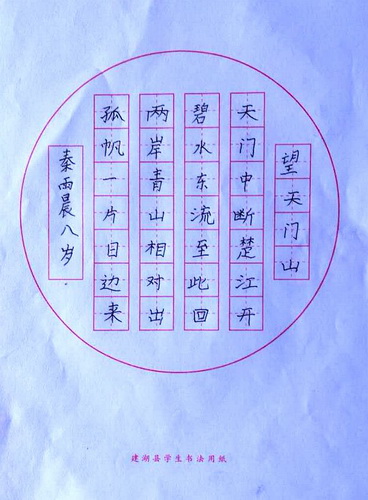 望天门山
天门中断楚江开
碧水东流至此回
两岸青山相对出
孤帆一片日边来
秦雨晨八岁.
建湖县学生书法用纸